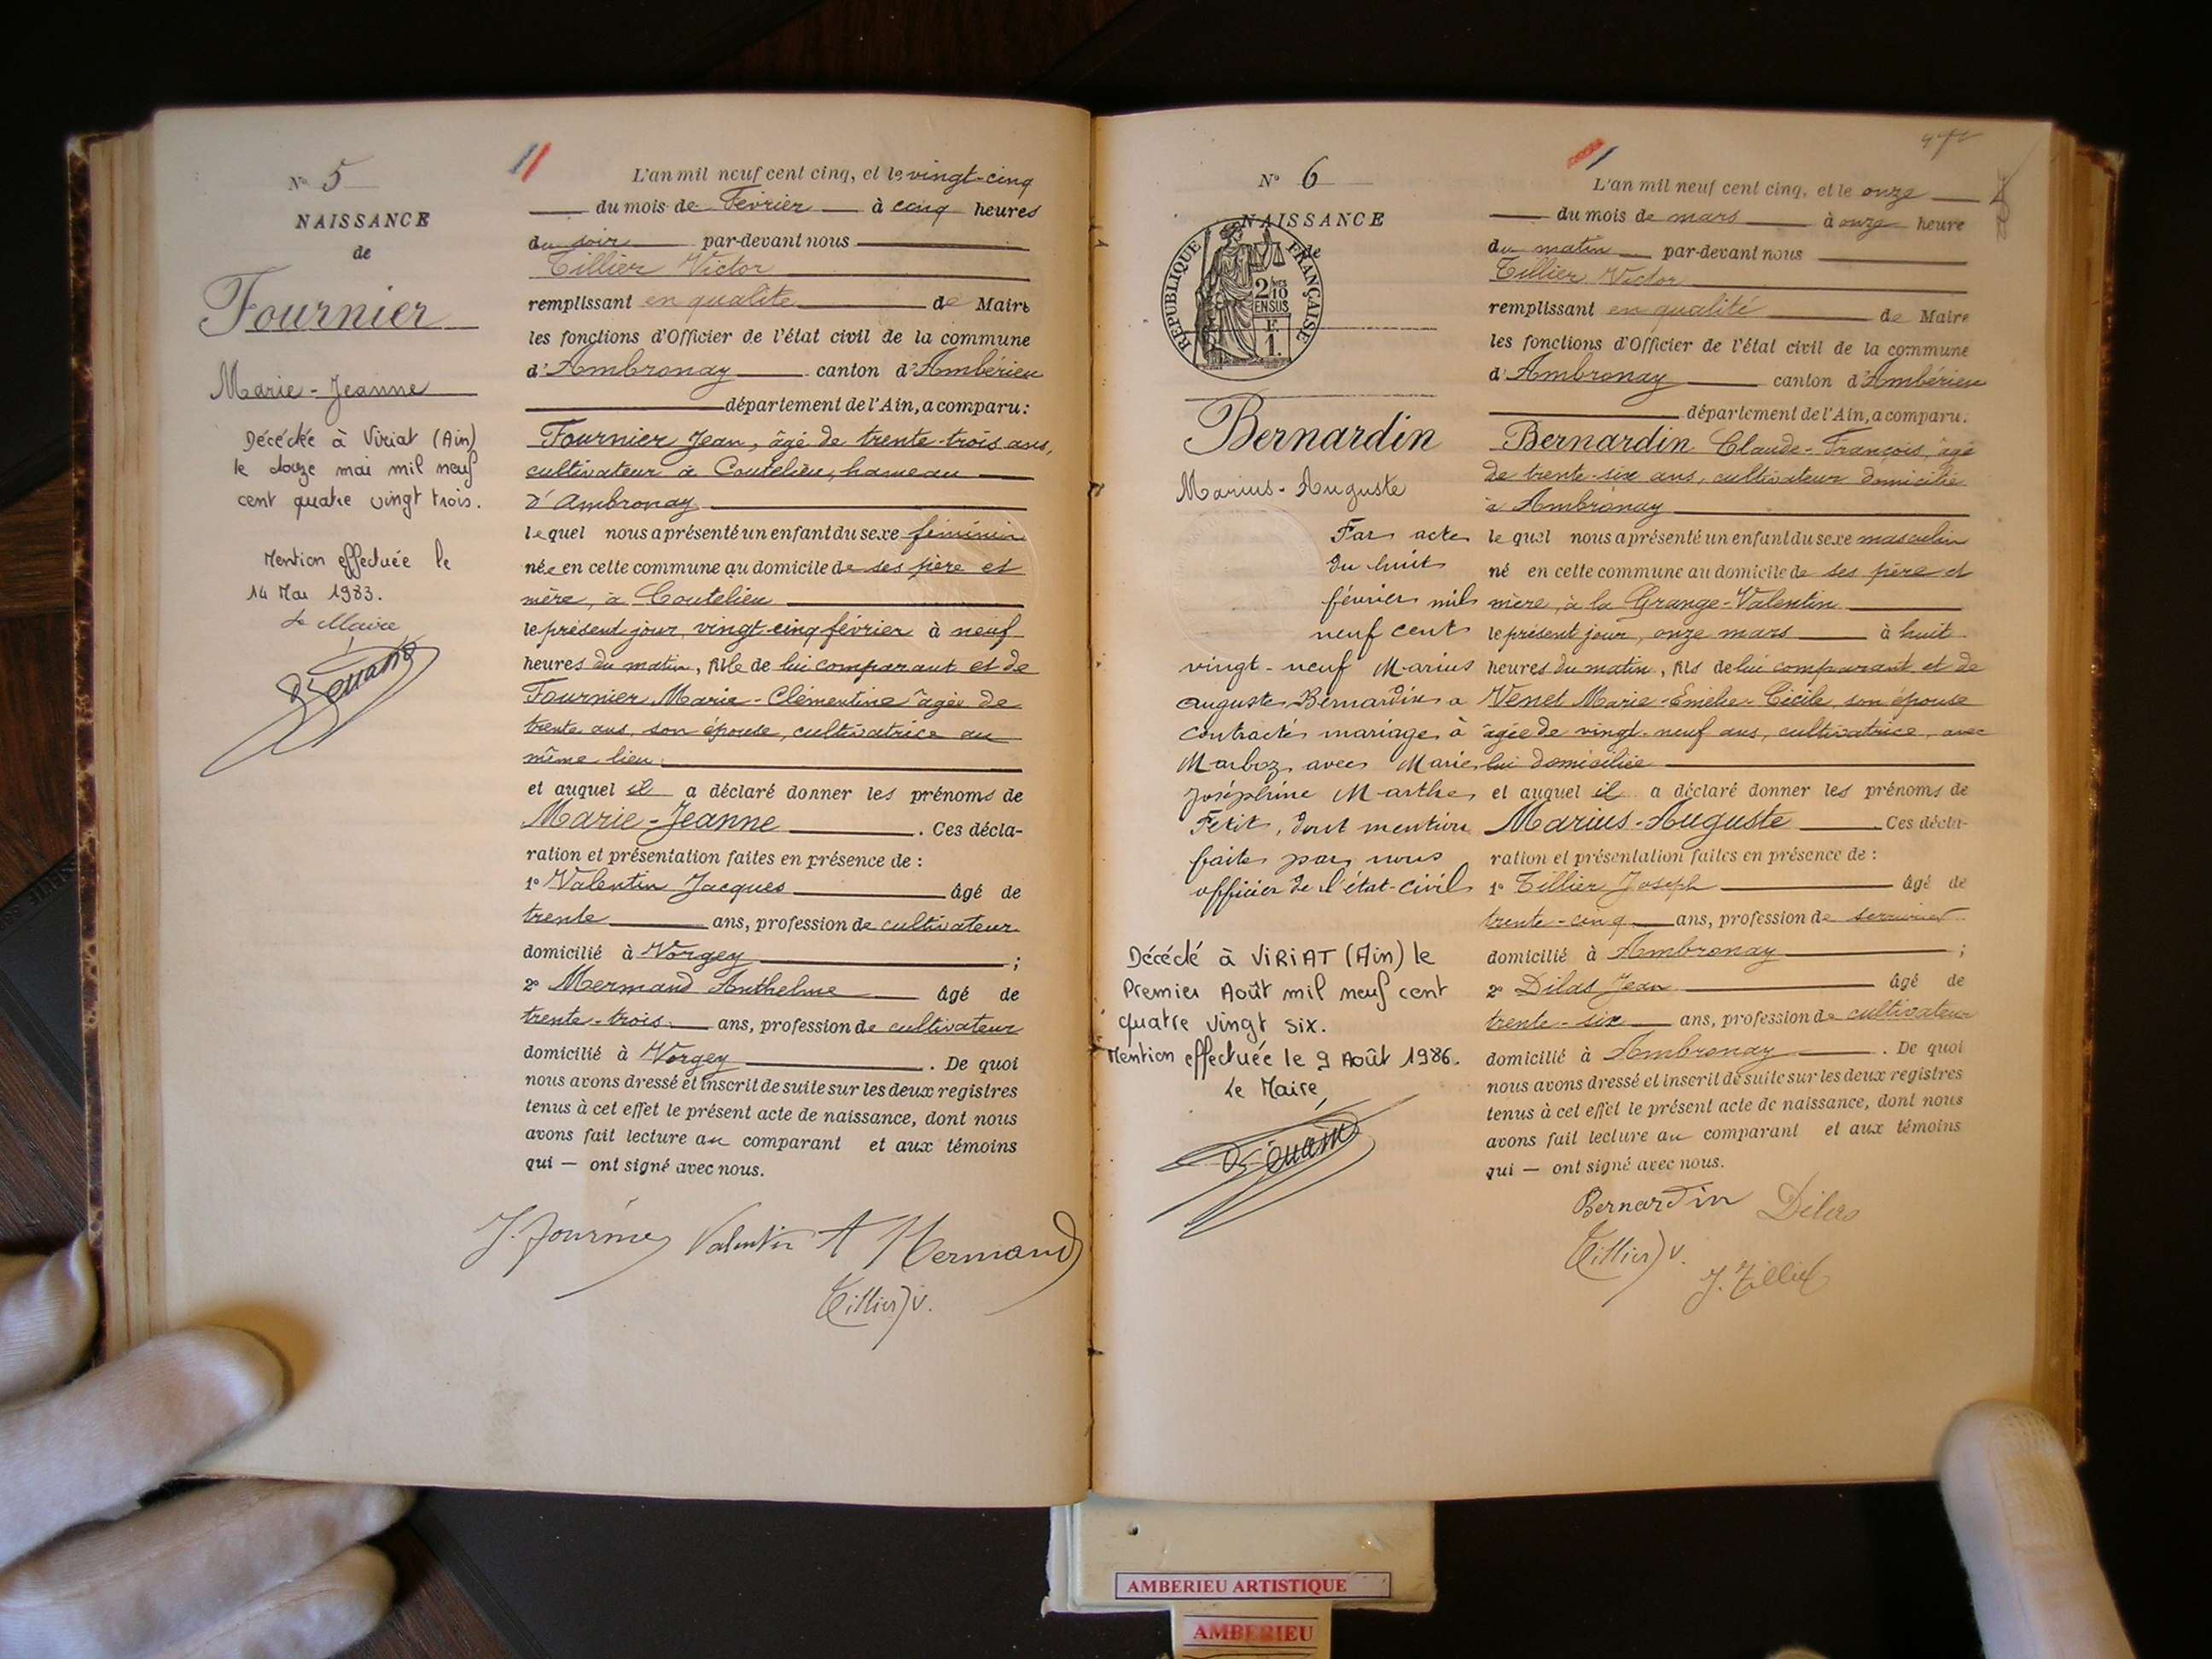 N° 5
NAISSANCE
de
Fournier
Marie-Jeanne
Décédée à Viriat (Ain)
le douze mai mil neuf
cent quatre vingt trois.
Mention effectuée le
14 Mai 1983.
Le Maire
L'an mil neuf cent cinq, et le vingt-cinq
du mois de Février à cinq heures
du soir par-devant nous
Tillier Victor
remplissant en qualité de Maire
les fonctions d'Officier de l'état civil de la commune
d'Ambronay canton d'Ambérieu
département de l'Ain, a comparu:
Fournier Jean, âgé de trente-trois ans,
cultivateur à Coutelieu, hameau
d'Ambronay
lequel nous a présenté un enfant du sexe féminin
née en cette commune au domicile de ses père et
mère, à Coutelieu
le présent jour, vingt-cinq février à neuf
heures du matin, fille de lui comparant et de
Fournier Marie-Clémentine âgée de
trente ans, son épouse, cultivatrice au
même lieu
et auquel il a déclaré donner les prénoms de
Marie-Jeanne . Ces décla-
ration et présentation faites en présence de :
1° Valentin Jacques âgé de
trente ans, profession de cultivateur
domicilié à Vorgey ;
2° Mermand Anthelme âgé de
trente-trois ans, profession de cultivateur
domicilié à Vorgey . De quoi
nous avons dressé et inscrit de suite sur les deux registres
tenus à cet effet le présent acte de naissance, dont nous
avons fait lecture au comparant et aux témoins
qui — ont signé avec nous.
J. Fournier Valentin A Mermand
Tillier V.
N° 6
NAISSANCE
de
REPUBLIQUE FRANÇAISE
2/10
EN SUS
F.
1.
Bernardin
Marius-Auguste
Par acte
du huit
février mil
neuf cent
vingt-neuf Marius
Auguste Bernardin a
contracté mariage à
Marboz avec Marie
Joséphine Marthe
Petit, dont mention
faite par nous
officier de l'état-civil
Décédé à VIRIAT (Ain) le
Premier Août mil neuf cent
quatre vingt six.
Mention effectuée le 9 Août 1986.
Le Maire,
L'an mil neuf cent cinq, et le onze
du mois de mars à onze heure
du matin par-devant nous
Tillier Victor
remplissant en qualité de Maire
les fonctions d'Officier de l'état civil de la commune
d'Ambronay canton d'Ambérieu
département de l'Ain, a comparu:
Bernardin Claude-François, âgé
de trente-six ans, cultivateur domicilié
à Ambronay
lequel nous a présenté un enfant du sexe masculin
né en cette commune au domicile de ses père et
mère, à la Grange-Valentin
le présent jour, onze mars à huit
heures du matin, fils de lui comparant et de
Venet Marie-Emélie-Cécile son épouse
âgée de vingt-neuf ans, cultivatrice, avec
lui domiciliée
et auquel il a déclaré donner les prénoms de
Marius-Auguste . Ces décla-
ration et présentation faites en présence de :
1° Tillier Joseph âgé de
trente-cinq ans, profession de serrurier
domicilié à Ambronay ;
2° Dilas Jean âgé de
trente-six ans, profession de cultivateur
domicilié à Ambronay . De quoi
nous avons dressé et inscrit de suite sur les deux registres
tenus à cet effet le présent acte de naissance, dont nous
avons fait lecture au comparant et aux témoins
qui — ont signé avec nous.
Bernardin Dilas
Tillier V.
J. Tillier
AMBERIEU ARTISTIQUE
AMBERIEU